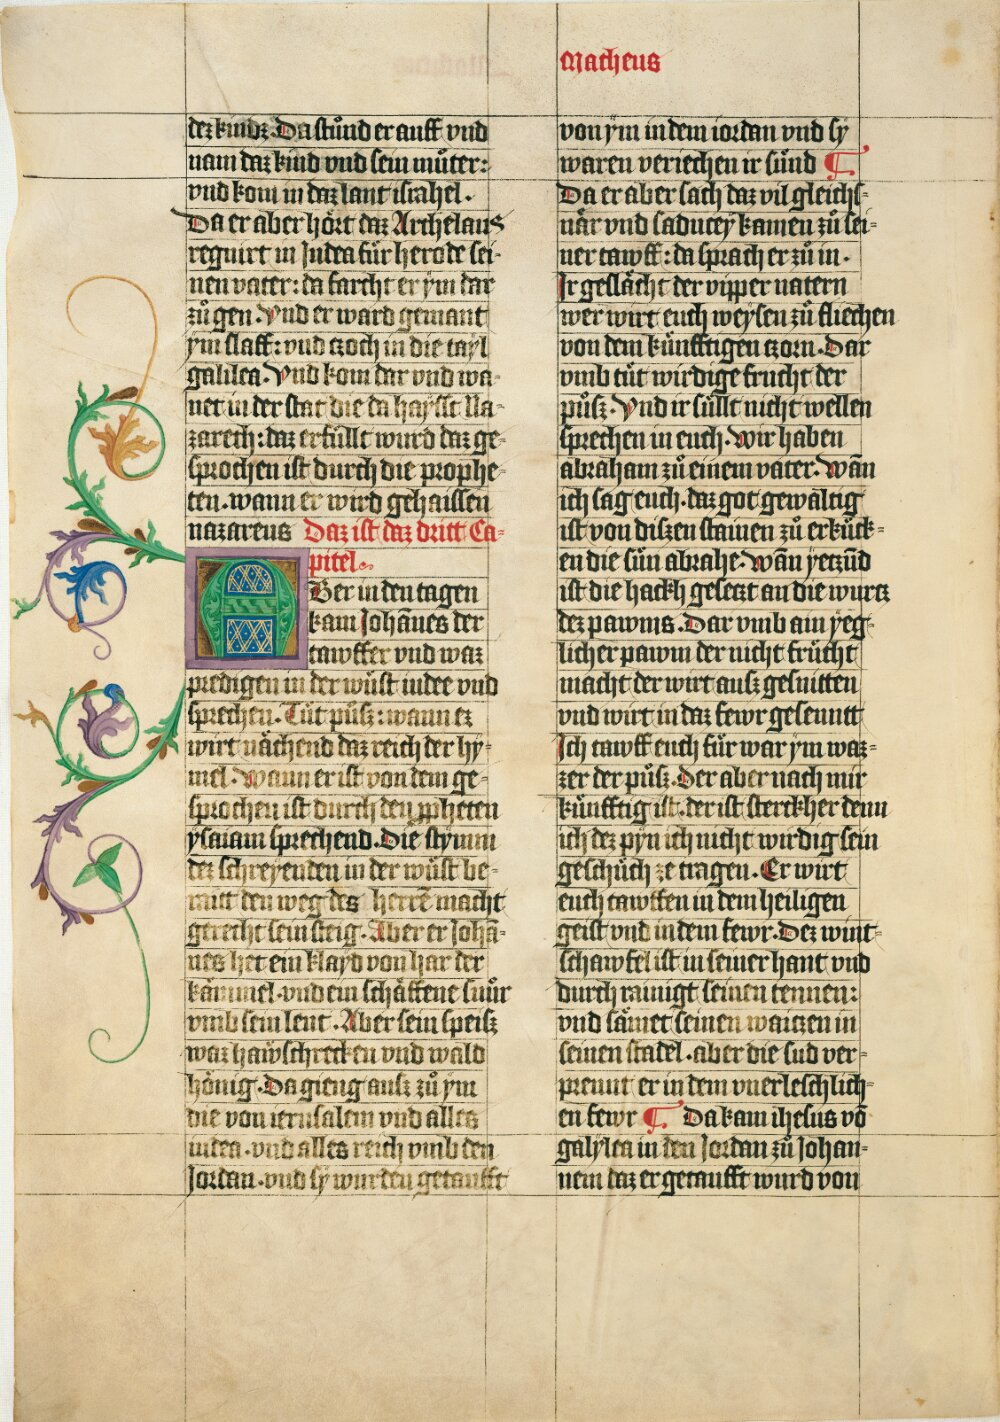 Matheus
dez kindz. Da stůnd er auff vnd
nam daz kind vnd sein můter:
vnd kom in daz lant israhel.
Da er aber hört daz Archelaus
regnirt in Judea für herode sei-
nen vater: da farcht er ÿm dar
zů gen. Vnd er ward gemant
ÿm slaff: vnd czoch in die tayl
galilea. Vnd kom dar vnd wa-
net in der stat die da haysst Na-
zareth: daz erfüllt wurd daz ge-
sprochen ist durch die prophe-
ten. wann er wird gehaissen
nazareus Daz ist daz dritt Ca-
pitel.
ABer in den tagen
kam Johānes der
tawffer vnd waz
predigen in der wüst iudee vnd
sprechen. Tůt půsz: wann ez
wirt nächend daz reich der hy-
mel. Wann er ist von dem ge-
sprochen ist durch den ꝓpheten
ysaiam sprechend. Die stymm
dez schreyenden in der wüst be-
raitt den weg des herrē macht
gerecht sein steig. Aber er Johā-
nes het ein klayd von har der
kämmel. vnd ein schäffene snůr
vmb sein lent. Aber sein speisz
waz hawschrecken vnd wald
hönig. Da gieng ausz zů ÿm
die von ierusalem vnd alles
iudea. vnd alles reich vmb den
Jordan. vnd sÿ wurden getaufft
von ÿm in dem iordan vnd sÿ
waren veriechen ir sünd ¶
Da er aber sach daz vil gleichs-
när vnd saducey kamen zů sei-
ner tawff: da sprach er zů in.
Ir geslächt der vipper natern
wer wirt euch weysen zů fliechen
von dem künfftigen czorn. Dar
vmb tůt wirdige frucht der
půsz. Vnd ir süllt nicht wellen
sprechen in euch. Wir haben
abraham zů einem vater. Wān
ich sag euch. daz got gewältig
ist von diszen stainen zů erkück-
en die sün abrahe. Wān yeczūd
ist die hackh geseczt an die wurcz
dez pawms. Dar vmb ain yeg-
licher pawm der nicht frücht
macht der wirt ausz gesnitten
vnd wirt in daz fewr gesenntt
Ich tawff euch für war ÿm waz-
zer der půsz. Der aber nach mir
künfftig ist. der ist sterckher denn
ich dez pÿn ich nicht wirdig sein
geschůch ze tragen. Er wirt
euch tawffen in dem heiligen
geist vnd in dem fewr. Dez wint-
schawfel ist in seiner hant vnd
durch rainigt seinen tennen:
vnd sämet seinen waitzen in
seinen stadel. aber die sud ver-
prennt er in dem vnerleschlich-
en fewr ¶ Da kam ihesus vō
galylea in den Jordan zů Johan-
nem daz er getaufft wurd von